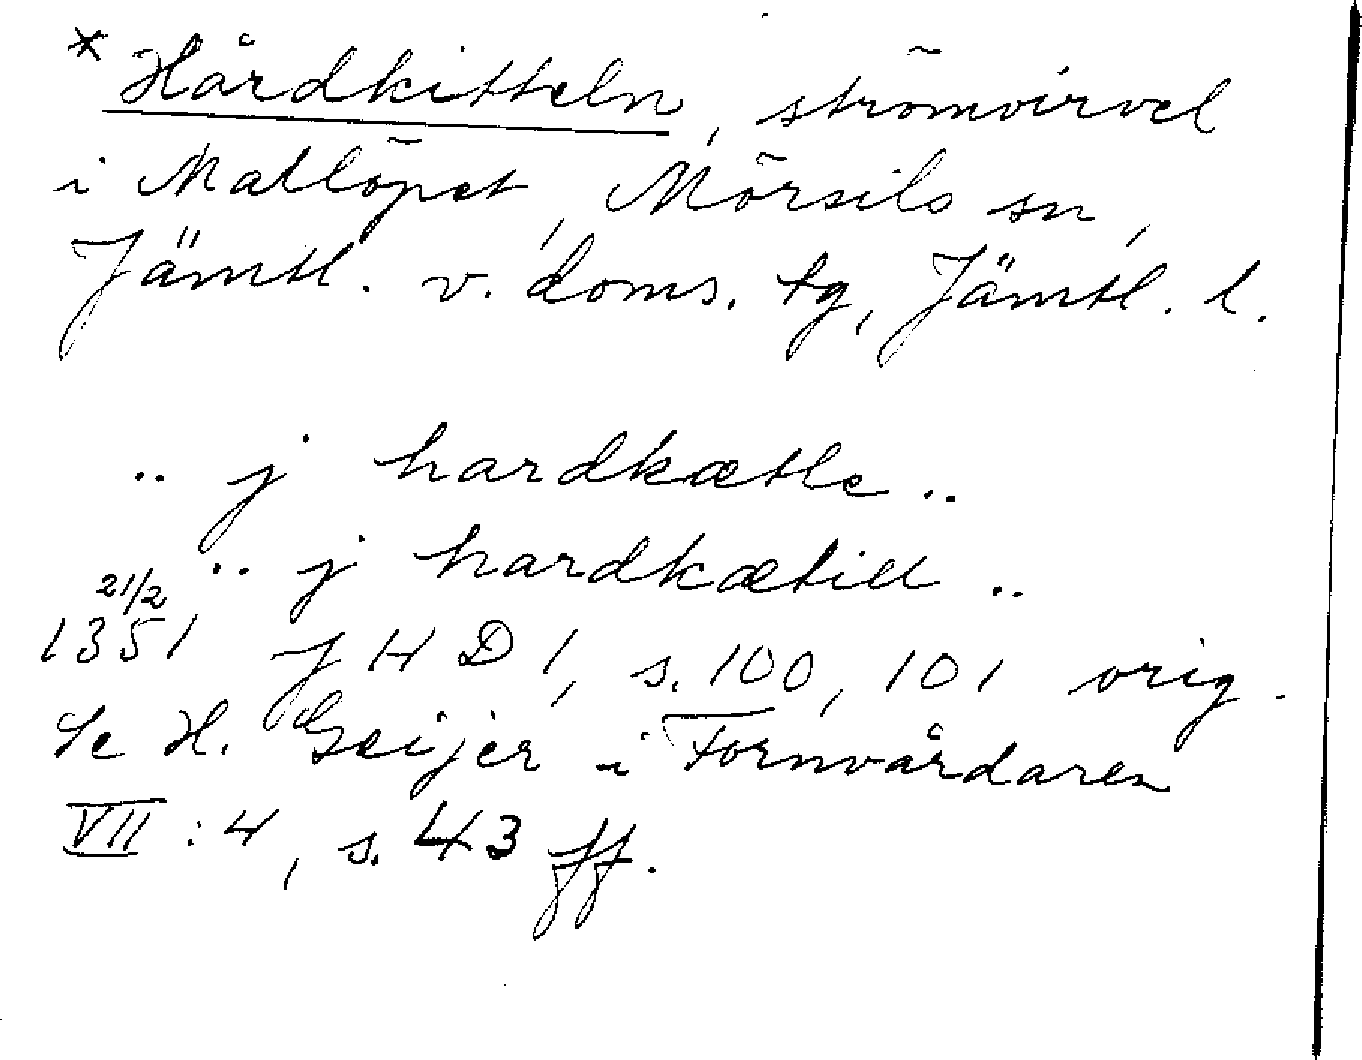 * Hårdkitteln, strömvirvel
i Matlöpet, Mörsils sn,
Jämtl. v. doms. tg, Jämtl. l.
.. j hardkætle ..
.. j hardkætill ..
21/2
1351 JHD 1, s. 100, 101 orig.
Se H. Geijer i Fornvårdaren
VII : 4, s. 43 ff.